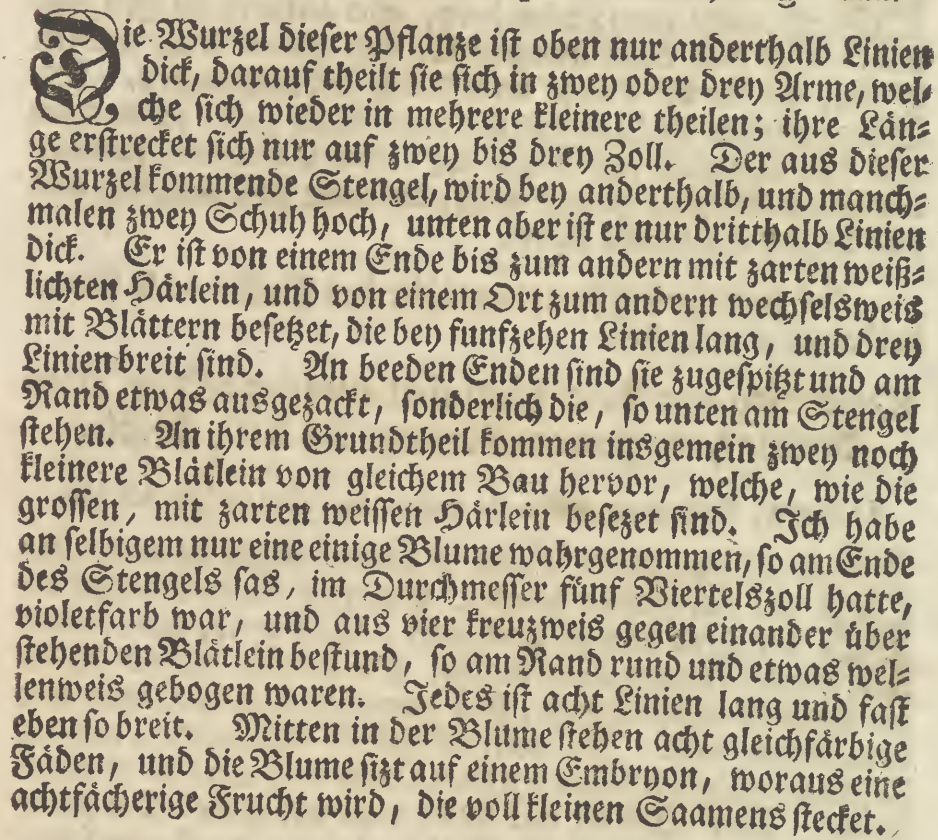 Die Wurzel dieser Pflanze ist oben nur anderthalb Linien
dick, darauf theilt sie sich in zwey oder drey Arme, wel-
che sich wieder in mehrere kleinere theilen; ihre Län-
ge erstrecket sich nur auf zwey bis drey Zoll. Der aus dieser
Wurzel kommende Stengel, wird bey anderthalb, und manch-
malen zwey Schuh hoch, unten aber ist er nur dritthalb Linien
dick. Er ist von einem Ende bis zum andern mit zarten weiß-
lichten Härlein, und von einem Ort zum andern wechselsweis
mit Blättern besetzet, die bey funfzehen Linien lang, und drey
Linien breit sind. An beeden Enden sind sie zugespitzt und am
Rand etwas ausgezackt, sonderlich die, so unten am Stengel
stehen. An ihrem Grundtheil kommen insgemein zwey noch
kleinere Blätlein von gleichem Bau hervor, welche, wie die
grossen, mit zarten weissen Härlein besezet sind. Ich habe
an selbigem nur eine einige Blume wahrgenommen, so am Ende
des Stengels sas, im Durchmesser fünf Viertelszoll hatte,
violetfarb war, und aus vier kreuzweis gegen einander über
stehenden Blätlein bestund, so am Rand rund und etwas wel-
lenweis gebogen waren. Jedes ist acht Linien lang und fast
eben so breit. Mitten in der Blume stehen acht gleichfärbige
Fäden, und die Blume sizt auf einem Embryon, woraus eine
achtfächerige Frucht wird, die voll kleinen Saamens stecket.